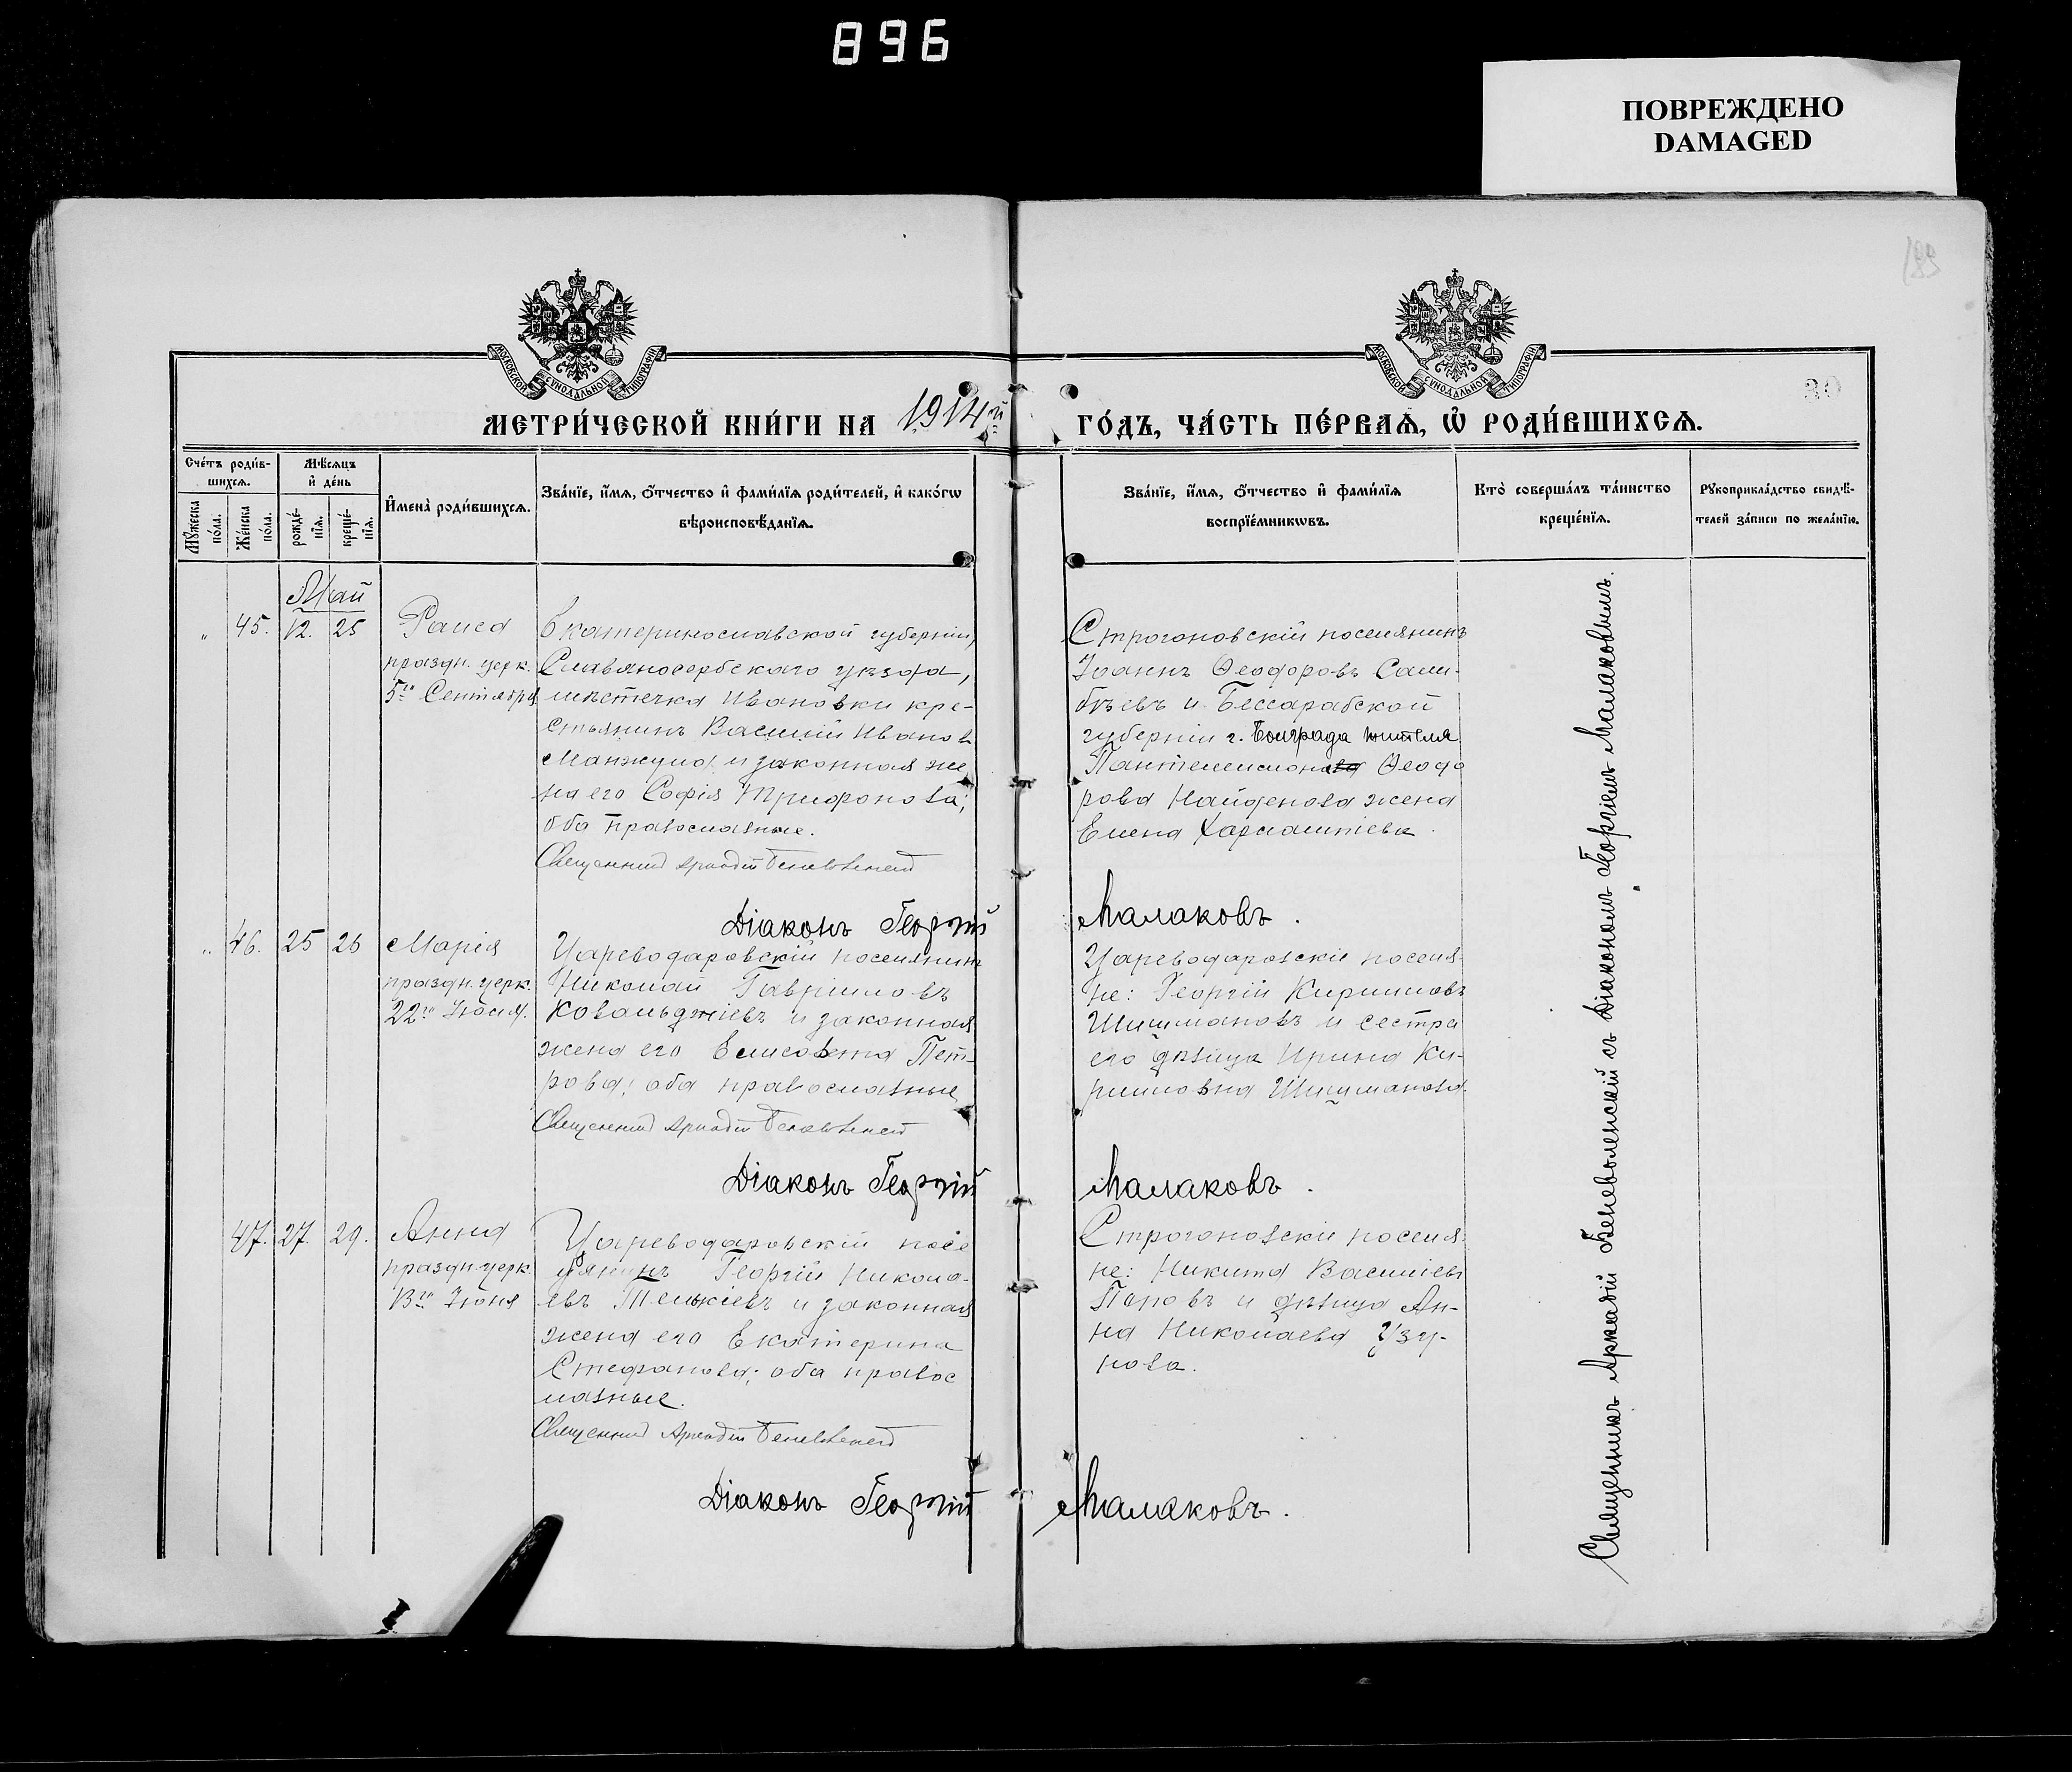 896
ПОВРЕЖДЕНО
DAMAGED
189
30
МОСКОВСКОЙ СѴНОДАЛЬНОЙ ТИПОГРАФІИ
МОСКОВСКОЙ СѴНОДАЛЬНОЙ ТИПОГРАФІИ
МЕТРИ́ЧЕСКОЙ КНИ́ГИ НА 1914й
ГО́ДЪ, ЧА́СТЬ ПЕ́РВАѦ, Ѡ҆ РОДИ́ВШИХСѦ.
Сче́тъ роди́в-
шихсѧ.
Мꙋ́жеска по́ла.
Же́нска по́ла.
Мѣ́сѧцъ
и҆ де́нь
рожде́-нїѧ.
креще́-нїѧ.
И҆мена̀ роди́вшихсѧ.
Зва́нїе, и҆́мѧ, ѻ҆́тчество и҆ фами́лїѧ роди́телей, и҆ како́гѡ
вѣроисповѣ́данїѧ.
Зва́нїе, и҆́мѧ, ѻ҆́тчество и҆ фами́лїѧ
воспрїе́мникѡвъ.
Кто̀ соверша́лъ та́инство
креще́нїѧ.
Рꙋкоприкла́дство свидѣ́-
телей за́писи по жела́нїю.
Май
" 45. 12. 25
Раиса
праздн. церк.
5го Сентября
Екатеринославской губерніи,
Славяносербскаго уѣзда,
мѣстечка Ивановки кре-
стьянинъ Василій Иванов
Манжула и законная же
на его Софія Трифонова;
оба православные.
Священник Аркадій Беневоленскій
Діаконъ Георгій
Строгановскій поселянинъ
Іоаннъ Ѳеодоровъ Сали-
бѣевъ и Бессарабской
губерніи г. Болграда жителя
Пантелеимона Ѳеодо
рова Найденова жена
Елена Харлампіева.
Малаковъ.
" 46. 25 26
Марія
праздн. церк.
22го Іюля.
Цареводаровскій поселянинъ
Николай Гавриловъ
Ковальджіевъ и законная
жена его Елисавета Пет-
рова; оба православные
Священник Аркадій Беневоленскій
Діаконъ Георгій
Цареводаровскіе поселя-
не: Георгій Кирилловъ
Шишмановъ и сестра
его дѣвица Ирина Ки-
рилловна Шишманова.
Малаковъ.
47. 27. 29.
Анна
праздн. церк.
13го Іюня
Цареводаровскій посе
лянинъ Георгій Никола-
евъ Телькіевъ и законная
жена его Екатерина
Стефанова; оба правос
лавные.
Священник Аркадій Беневоленскій
Діаконъ Георгій
Строгановскіе поселя-
не: Никита Василіевъ
Поповъ и дѣвица Ан-
на Николаева Узу-
нова.
Малаковъ.
Священникъ Аркадій Беневоленскій съ Діакономъ Георгіемъ Малаковымъ.